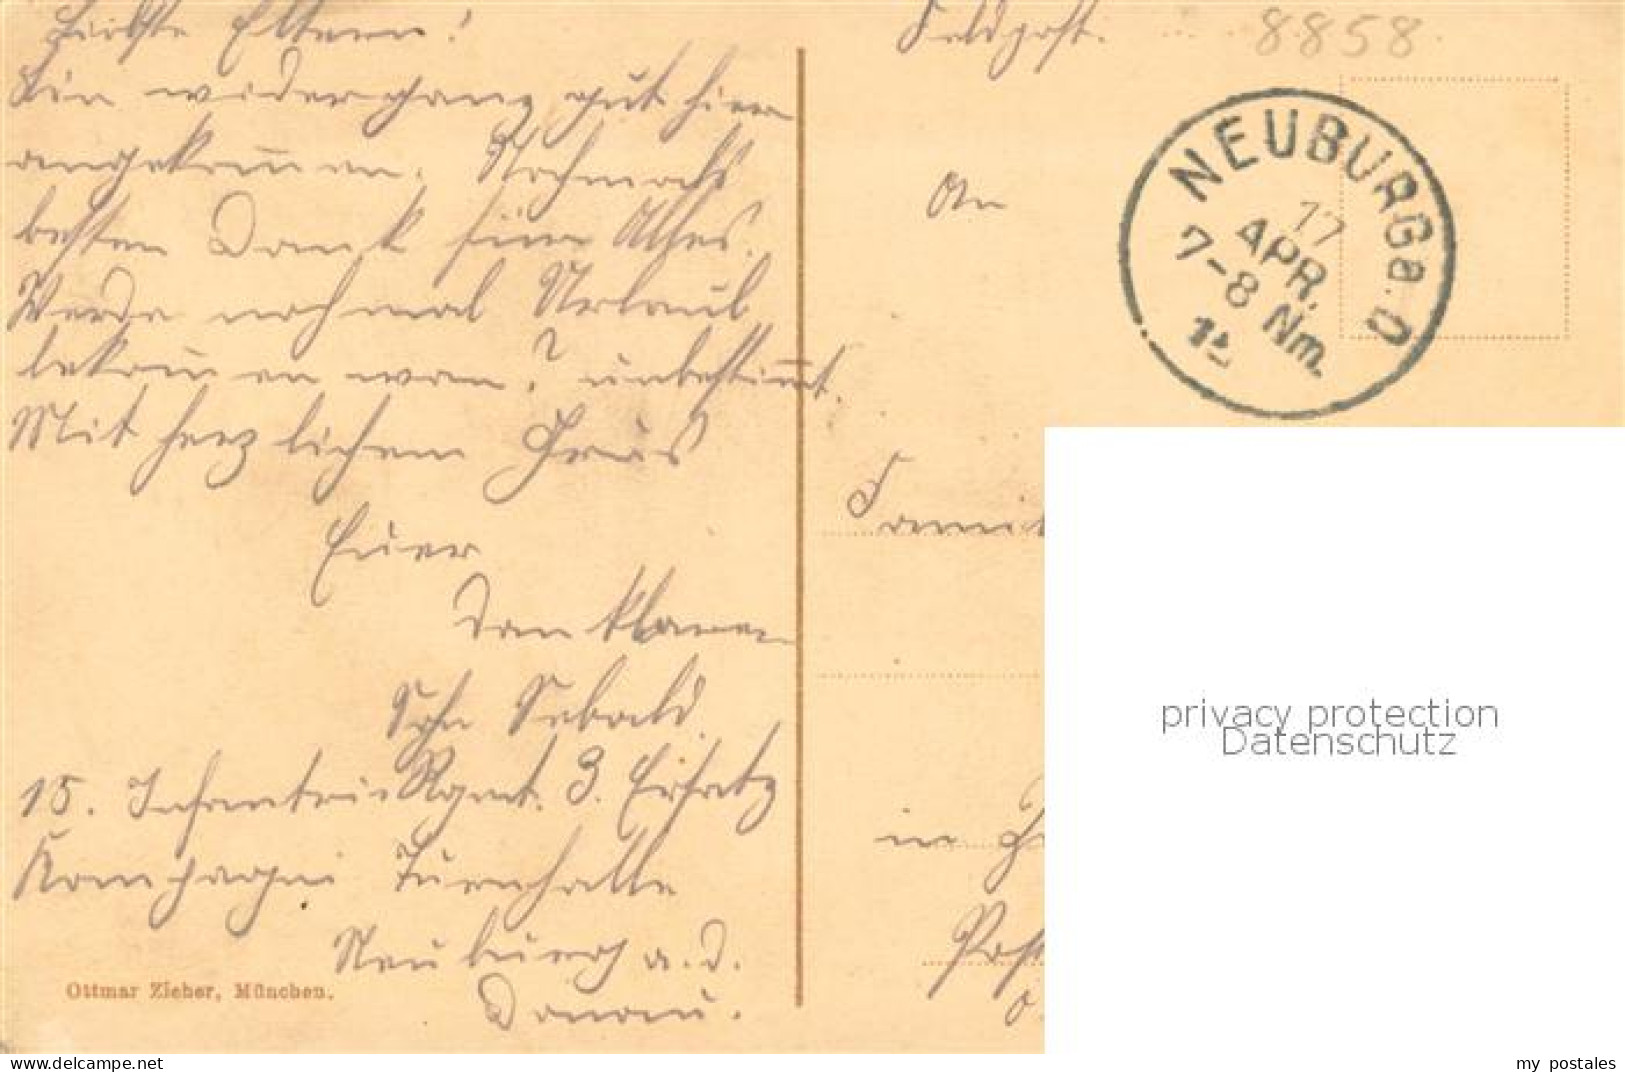 Liebste Eltern!
Bin wider ganz gut hier
angekom̅en. Nochmals
besten Dank für Alles.
Werde noch mal Urlaub
bekom̅en wan? unbestim̅t.
Mit herzlichem Grus
Euer
Dankbarer
Sohn Sebald.
15. Infantrie Rgmt. 3. Ersatz
Kompagni Turnhalle
Neuburg a. d.
Donau.
Ottmar Zieher, München.
Feldpost.
8858
NEUBURG a. D
17
APR.
7-8 Nm.
An
in
Post
privacy protection
Datenschutz
delcampe.net
my_postales